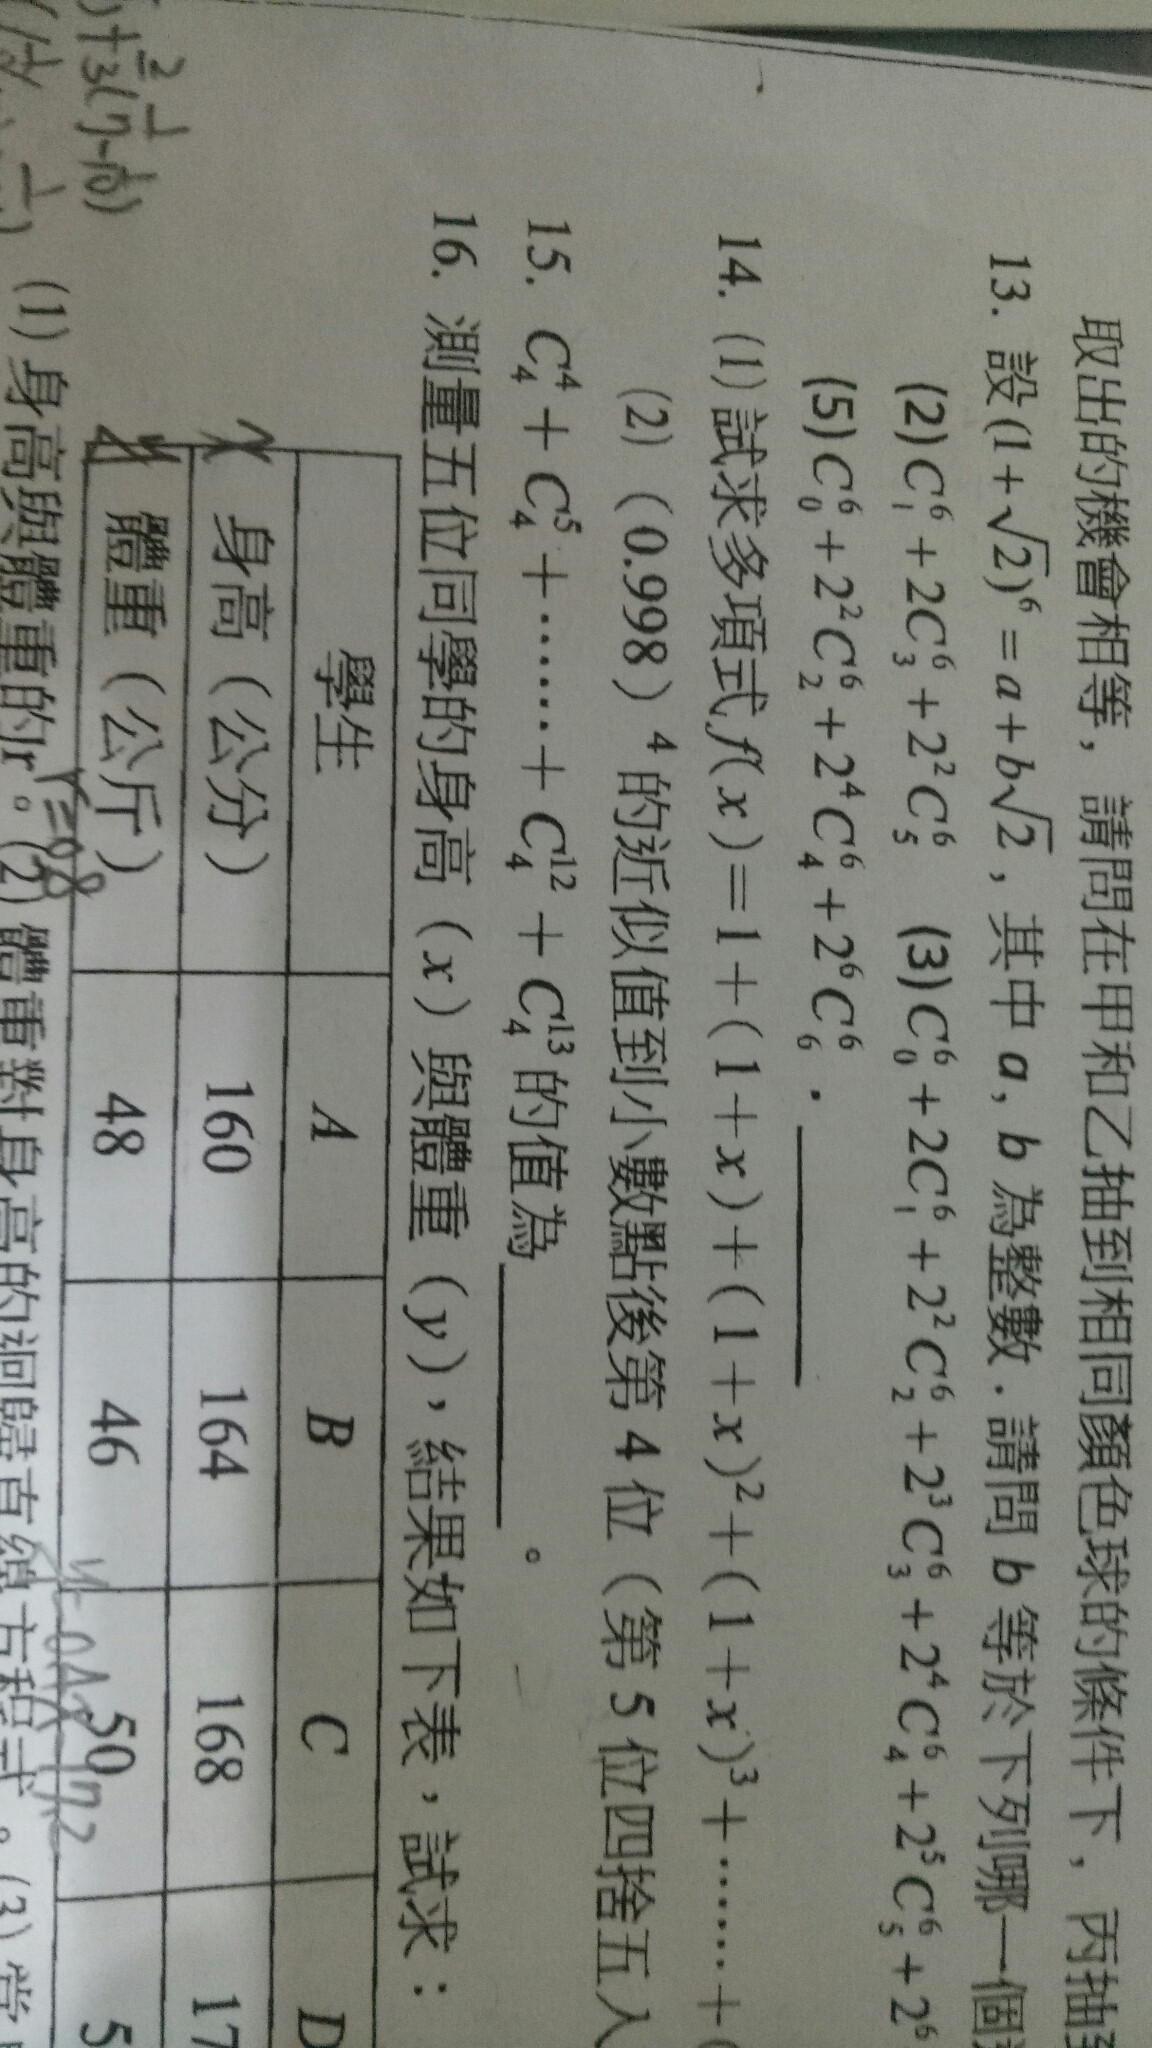 取出的機會相等，請問在甲和乙抽到相同顏色球的條件下，丙抽
13. 設(1+√2)⁶=a+b√2，其中 a，b 為整數．請問 b 等於下列哪一個
(2)C₁⁶+2C₃⁶+2²C₅⁶ (3)C₀⁶+2C₁⁶+2²C₂⁶+2³C₃⁶+2⁴C₄⁶+2⁵C₅⁶+2⁶
(5)C₀⁶+2²C₂⁶+2⁴C₄⁶+2⁶C₆⁶．
14. (1)試求多項式f(x)=1+(1+x)+(1+x)²+(1+x)³+⋯⋯+(
(2)（0.998）⁴的近似值到小數點後第 4 位（第 5 位四捨五入
15. C₄⁴+C₄⁵+⋯⋯+C₄¹²+C₄¹³的值為。
16. 測量五位同學的身高（x）與體重（y），結果如下表，試求：
學生 A B C D
x 身高（公分） 160 164 168 17
y 體重（公斤） 48 46 50 5
(1)身高與體重的r。(2)體重對身高的迴歸直線方程式。(3)
r=0.8